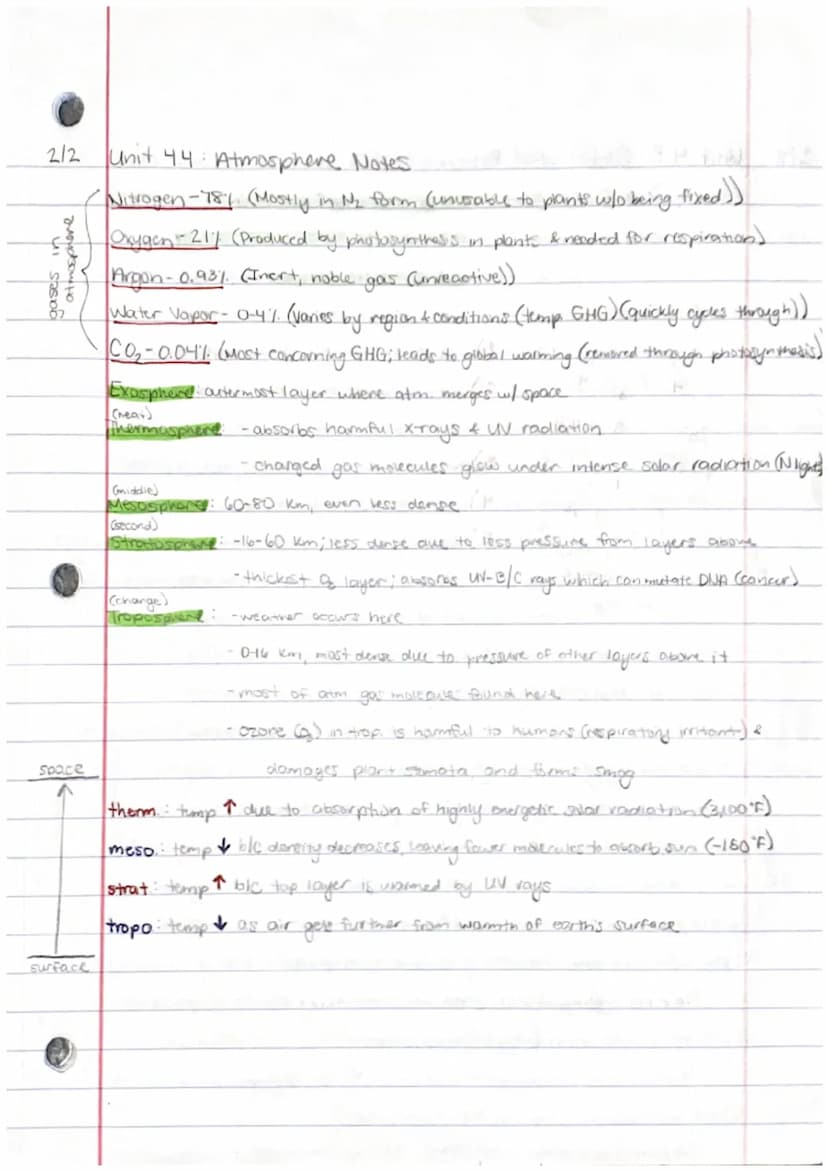 2/2 Unit 4.4: Atmosphere Notes
gases in atmosphere
Nitrogen - 78% (Mostly in N₂ form (unusable to plants w/o being fixed))
Oxygen - 21% (Produced by photosynthesis in plants & needed for respiration)
Argon - 0.93% (Inert, noble gas (unreactive))
Water Vapor - 0-4% (Varies by region & conditions (temp GHG) (quickly cycles through))
CO₂ - 0.04% (Most concerning GHG; leads to global warming (removed through photosynthesis)
Exosphere: outermost layer where atm. merges w/ space
(heat)
Thermosphere: - absorbs harmful x-rays & UV radiation
- charged gas molecules glow under intense solar radiation (N lights)
(middle)
Mesosphere: 60-80 km, even less dense
(second)
Stratosphere: -16-60 km; less dense due to less pressure from layers above
- thickest O₃ layer; absorbs UV-B/C rays which can mutate DNA (cancer)
(change)
Troposphere: - weather occurs here
- 0-16 km, most dense due to pressure of other layers above it
- most of atm gas molecule found here
- ozone (O₃) in trop. is harmful to humans (respiratory irritant) &
damages plant stomata, and forms smog
space
therm.: temp ↑ due to absorption of highly energetic solar radiation (3,100°F)
meso.: temp ↓ b/c density decreases, leaving fewer molecules to absorb sun (-150°F)
strat: temp ↑ b/c top layer is warmed by UV rays
tropo: temp ↓ as air gets further from warmth of earth's surface
surface